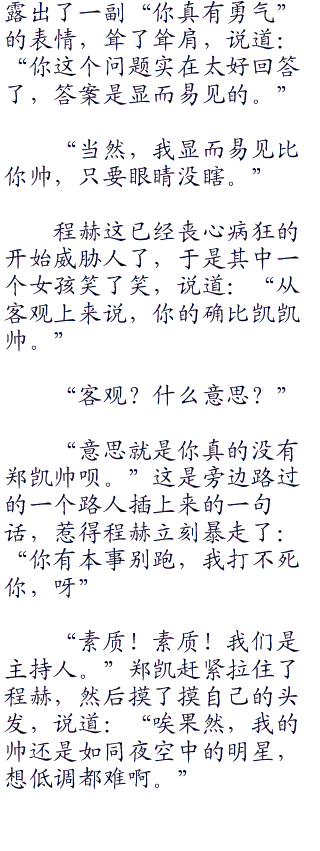 露出了一副“你真有勇气”
的表情，耸了耸肩，说道：
“你这个问题实在太好回答
了，答案是显而易见的。”
“当然，我显而易见比
你帅，只要眼睛没瞎。”
程赫这已经丧心病狂的
开始威胁人了，于是其中一
个女孩笑了笑，说道：“从
客观上来说，你的确比凯凯
帅。”
“客观？什么意思？”
“意思就是你真的没有
郑凯帅呗。”这是旁边路过
的一个路人插上来的一句
话，惹得程赫立刻暴走了：
“你有本事别跑，我打不死
你，呀”
“素质！素质！我们是
主持人。”郑凯赶紧拉住了
程赫，然后摸了摸自己的头
发，说道：“唉果然，我的
帅还是如同夜空中的明星，
想低调都难啊。”